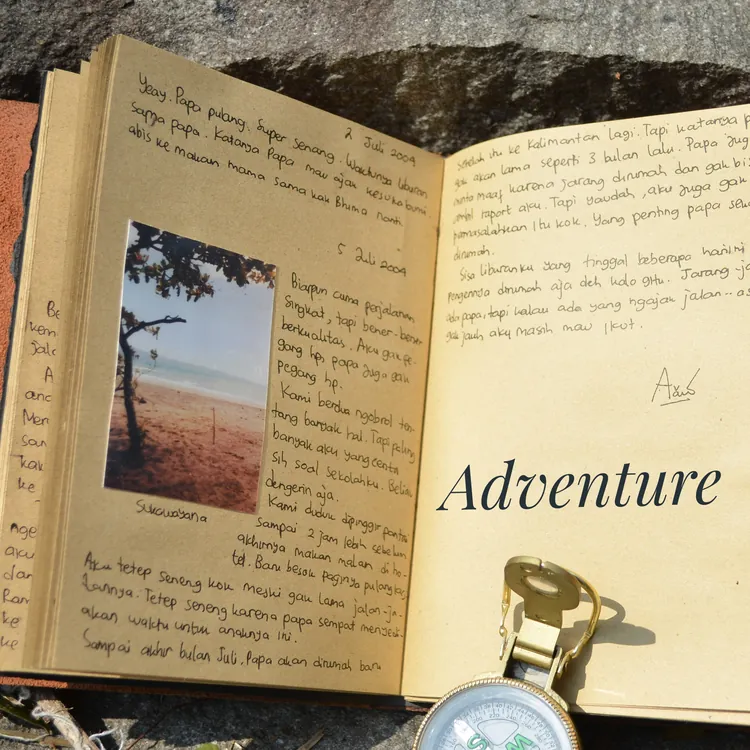 2 Juli 2009
Yeay. Papa pulang. Super senang. Waktunya liburan
sama papa. Katanya Papa mau ajak ke sukabumi,
abis ke makam mama sama kak Bhima nanti
5 Juli 2009
Biarpun cuma perjalanan
Singkat, tapi bener-bener
berkualitas. Aku gak pe-
gang hp, papa juga gak
pegang hp.
Kami berdua ngobrol ten-
tang banyak hal. Tapi paling
banyak aku yang cerita
sih soal sekolahku. Beliau
dengerin aja.
Kami duduk dipinggir pantai
sampai 2 jam lebih sebelum
akhirnya makan malam di ho-
tel. Baru besok paginya pulang
Sukawayana
Aku tetep seneng kok meski gak lama jalan-ja-
lannya. Tetep seneng karena papa sempat
akan waktu untuk anaknya ini.
Sampai akhir bulan Juli, Papa akan dirumah baru
setelah itu ke Kalimantan lagi. Tapi katanya
gak akan lama seperti 3 bulan lalu. Papa jug
minta maaf karena jarang dirumah dan gak bis
ambil raport aku. Tapi yaudah, aku juga gak
permasalahkan itu kok. Yang penting papa
dirumah.
Sisa liburanku yang tinggal beberapa hari ini
Pengennya dirumah aja deh kalo gitu. Jarang
ada papa, tapi kalau ada yang ngajak jalan-- as
gak jauh aku masih mau ikut.
Adventure